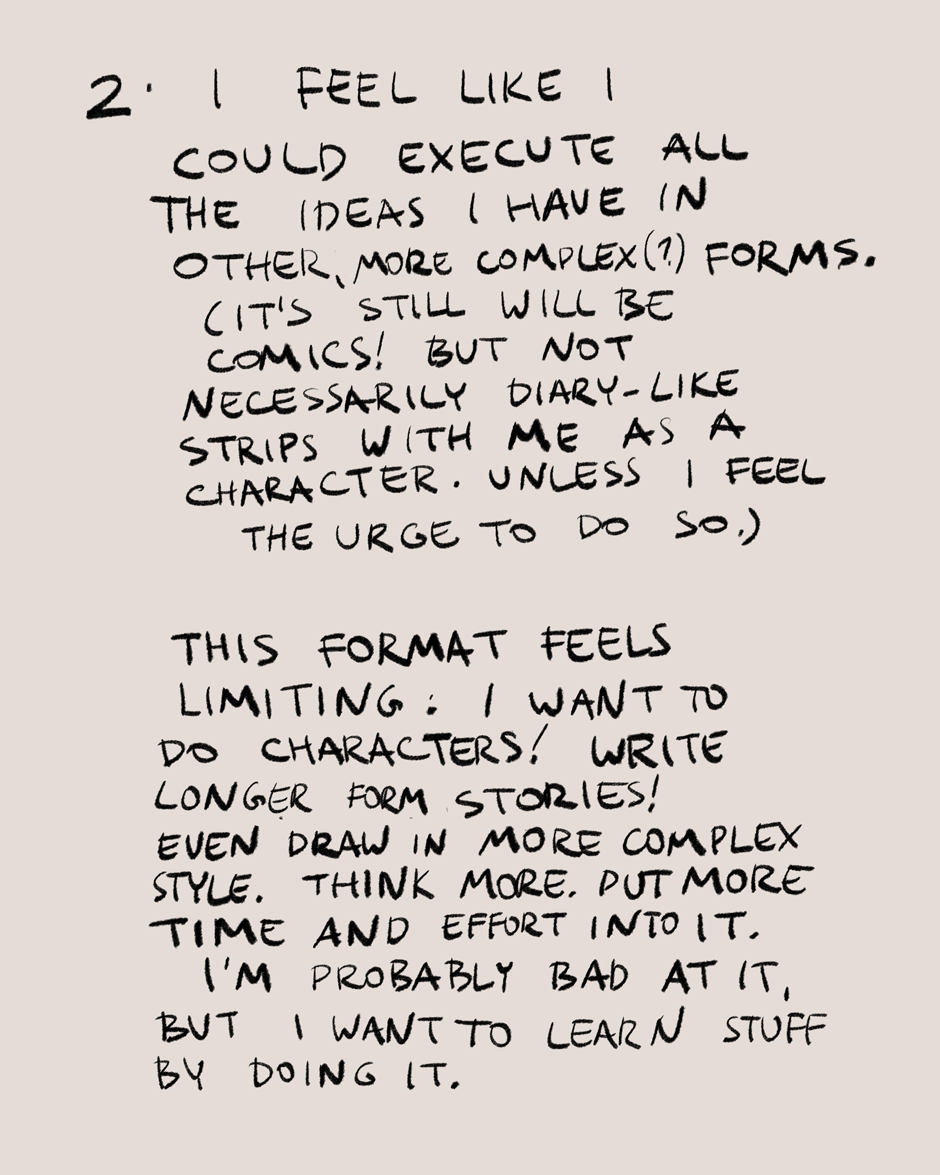 2. I FEEL LIKE I
COULD EXECUTE ALL
THE IDEAS I HAVE IN
OTHER, MORE COMPLEX(?) FORMS.
(IT'S STILL WILL BE
COMICS! BUT NOT
NECESSARILY DIARY-LIKE
STRIPS WITH ME AS A
CHARACTER. UNLESS I FEEL
THE URGE TO DO SO.)
THIS FORMAT FEELS
LIMITING: I WANT TO
DO CHARACTERS! WRITE
LONGER FORM STORIES!
EVEN DRAW IN MORE COMPLEX
STYLE. THINK MORE. PUT MORE
TIME AND EFFORT INTO IT.
I'M PROBABLY BAD AT IT,
BUT I WANT TO LEARN STUFF
BY DOING IT.